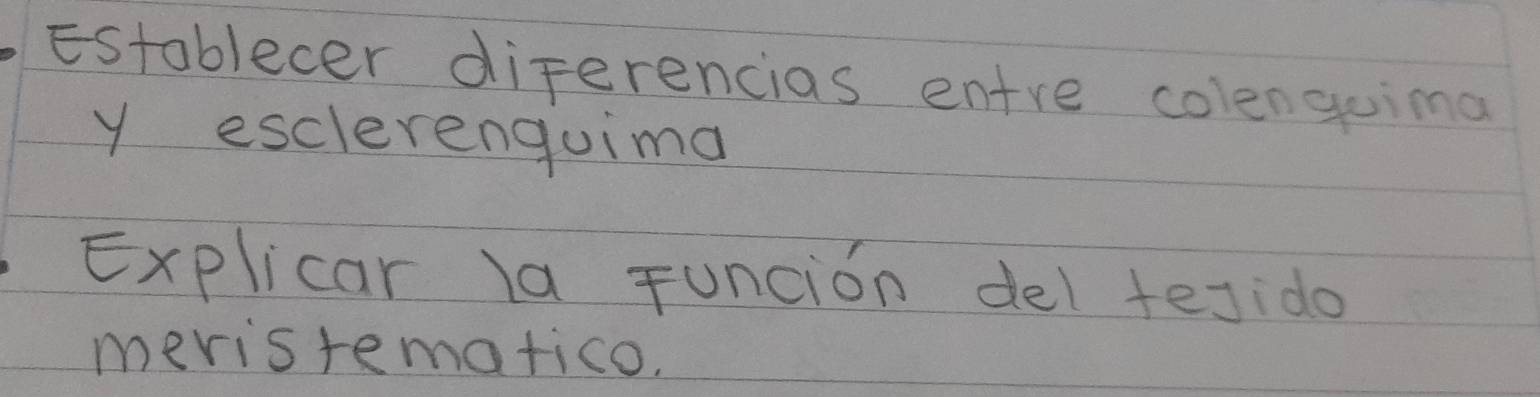 . Establecer diferencias entre colenquima
y esclerenquima
. Explicar la función del tejido
meristematico.